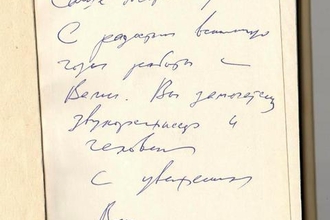 С радостью вспоминаю
годы работы с
Вами. Вы замечательный
звукорежиссер и
человек
с уважением
В